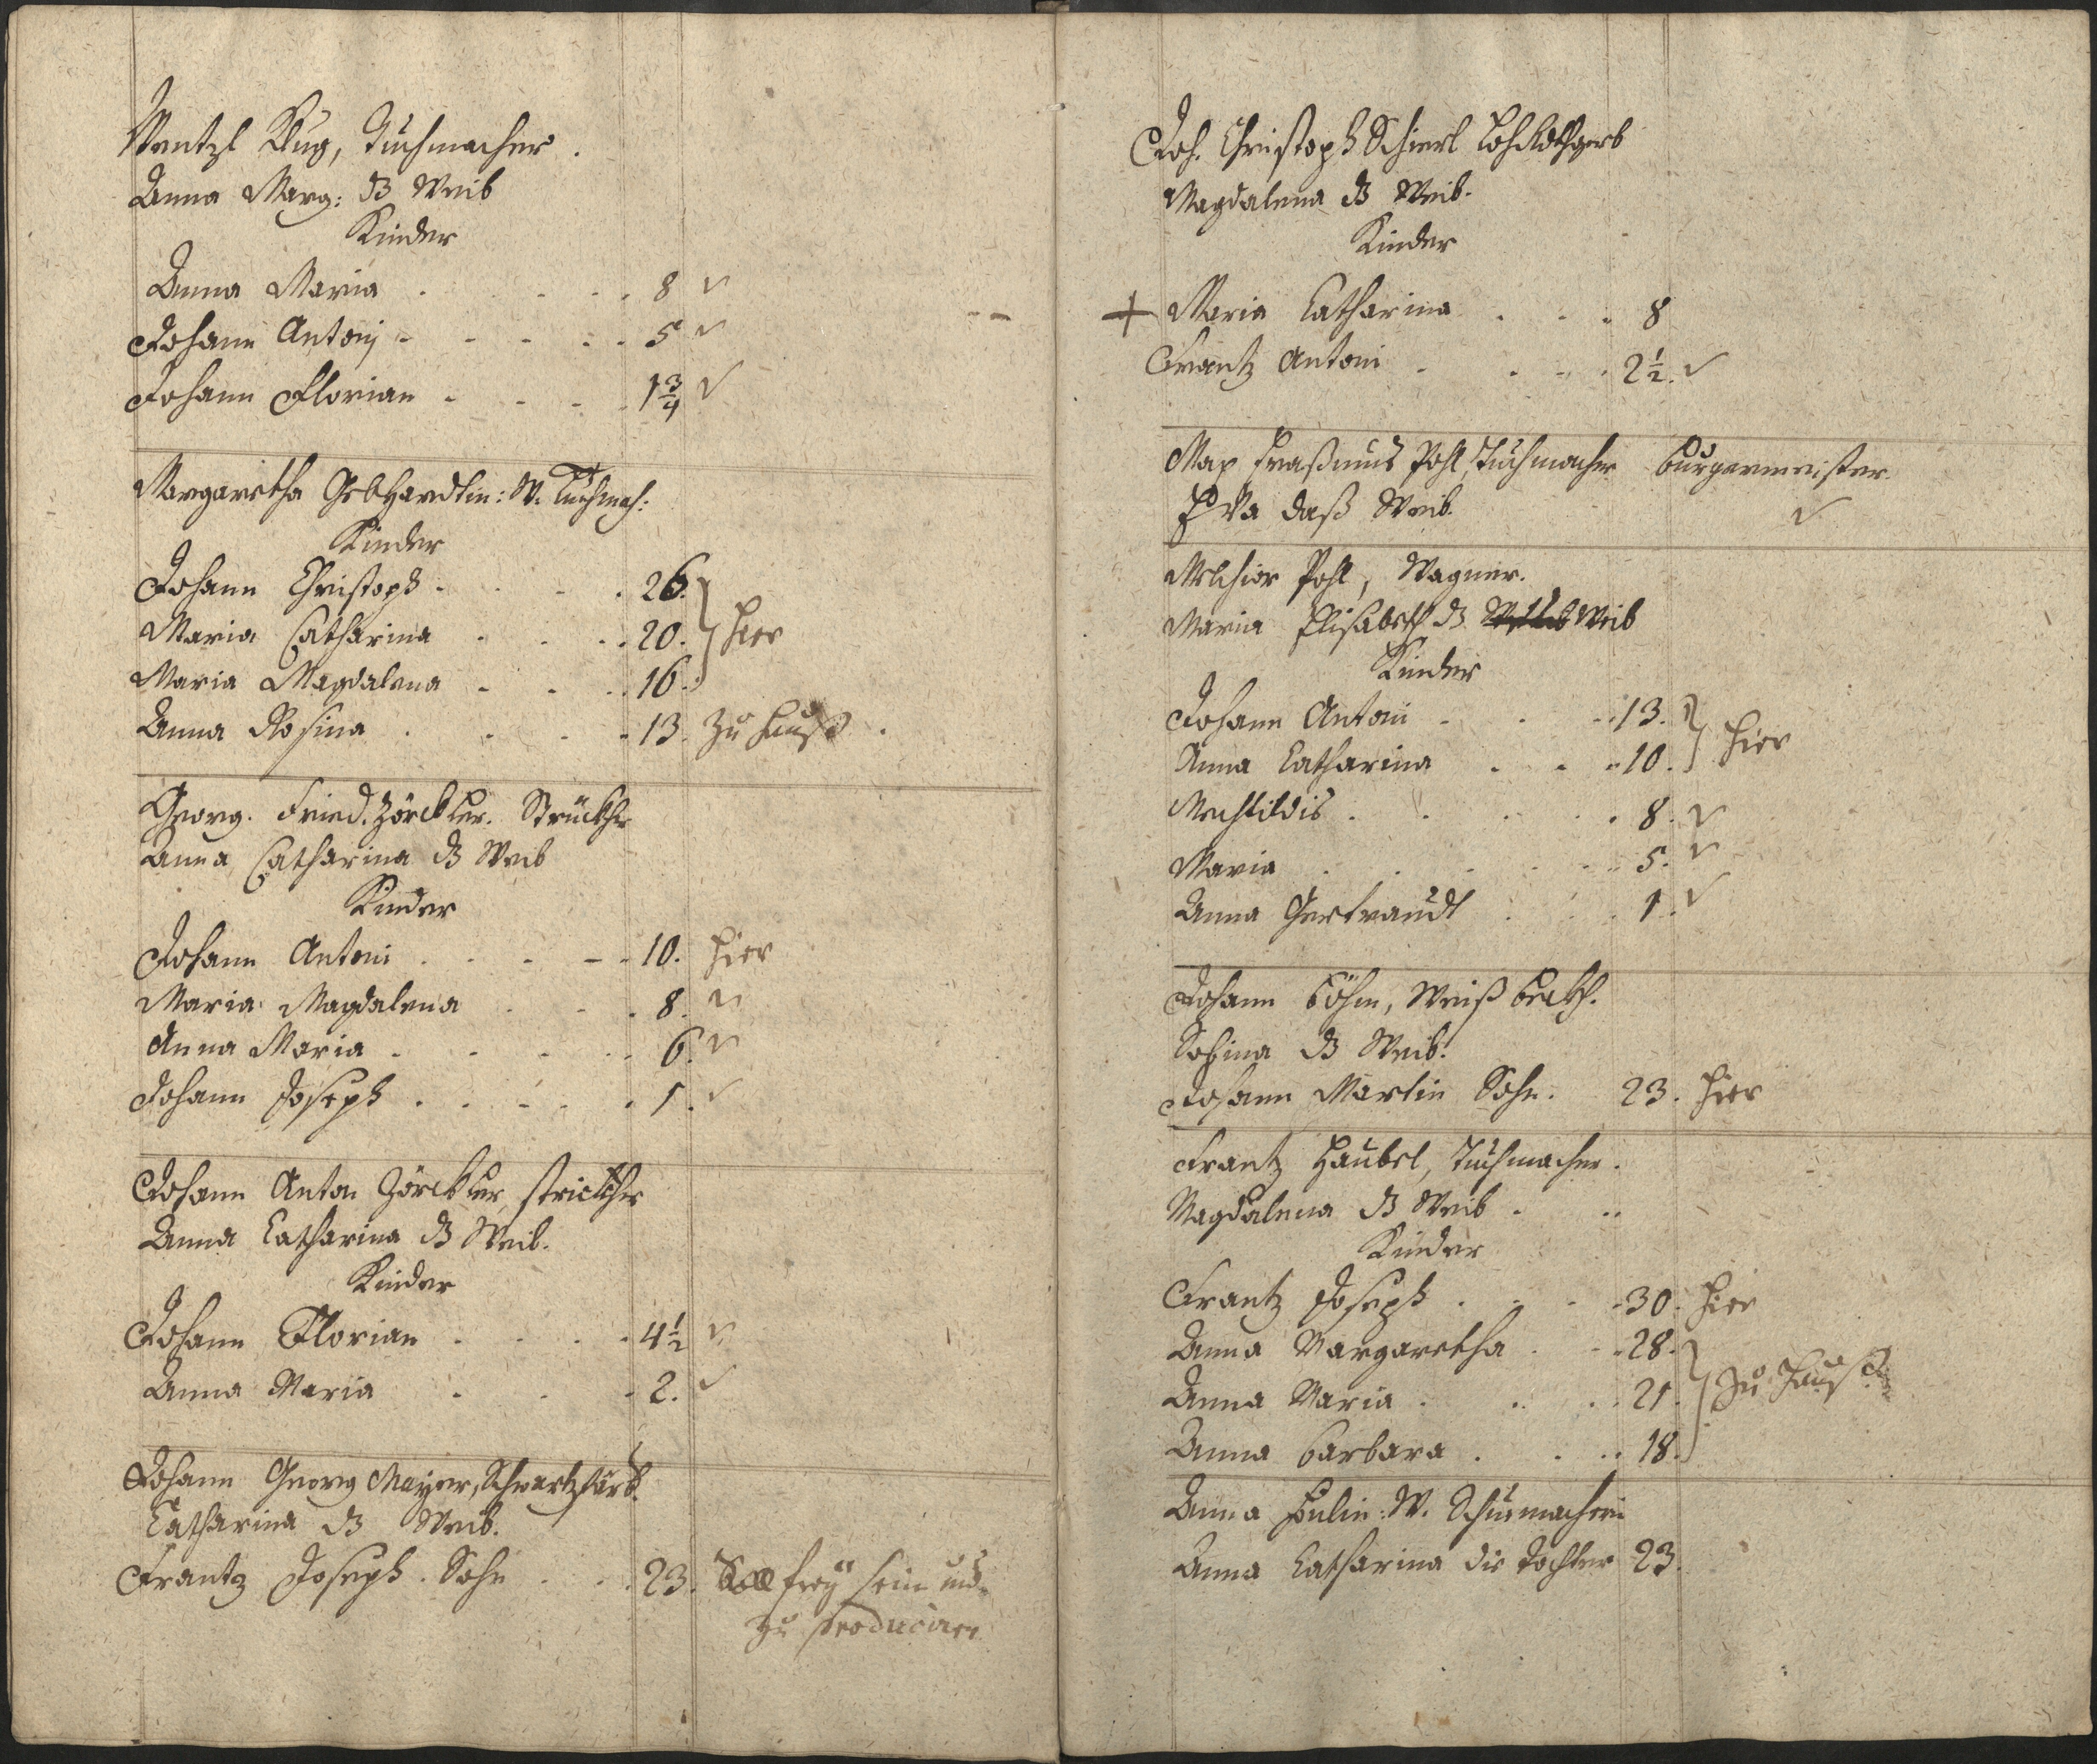 Wentzl Klug, Tuchmacher.
Anna Marg: ds Weib
Kinder
Anna Maria . . . . 8 ✓
Johann Antonj . . . . 5 ✓
Johann Florian . . . . 1 3/4 ✓
Margaretha Gebhardtin: W. Tuchmach:
Kinder
Johann Christoph . . . 26.
Maria Catharina . . . 20. } hier
Maria Magdalena . . . 16.
Anna Rosina . . . . 13. zu Hauß.
Georg. Fried. Zörckler. Strückher
Anna Catharina ds Weib
Kinder
Johann Antoni . . . . 10. hier
Maria Magdalena . . . 8. ✓
Anna Maria . . . . 6. ✓
Johann Joseph . . . . . 1. ✓
Johann Anton Zörckler, strickher
Anna Catharina ds Weib.
Kinder
Johann Florian . . . . 4 1/2 ✓
Anna Maria . . . 2. ✓
Johann Georg Mayer, Schwartzfärb.
Catharina ds Weib.
Frantz Joseph. Sohn . . . 23. Soll frey sein und
zu produciren
Joh. Christoph Schierl
Magdalena ds Weib.
Kinder
+ Maria Catharina . . . 8
Frantz Antoni . . . . 2 1/2. ✓
Max Eraßmus Pohl, Tuchmacher Burgermeister.
Eva daß Weib. ✓
Melchior Pohl, Wagner.
Maria Elisabeth ds Weib
Kinder
Johann Antoni . . . 13. } hier
Anna Catharina . . . 10.
Mechtildis . . . . . 8. ✓
Maria . . . . . 5. ✓
Anna Gertraudt . . . 1. ✓
Johann Böhm, Weiß beckh.
Sabina ds Weib.
Johann Martin Sohn. 23. hier
Frantz Haubel, Tuchmacher.
Magdalena ds Weib. . .
Kinder
Frantz Joseph . . . . 30. hier
Anna Margaretha . . . 28.
Anna Maria . . . . 21. } zu Hauß
Anna Barbara . . . . 18.
Anna W. Schumacherin
Anna Catharina die Tochter 23.